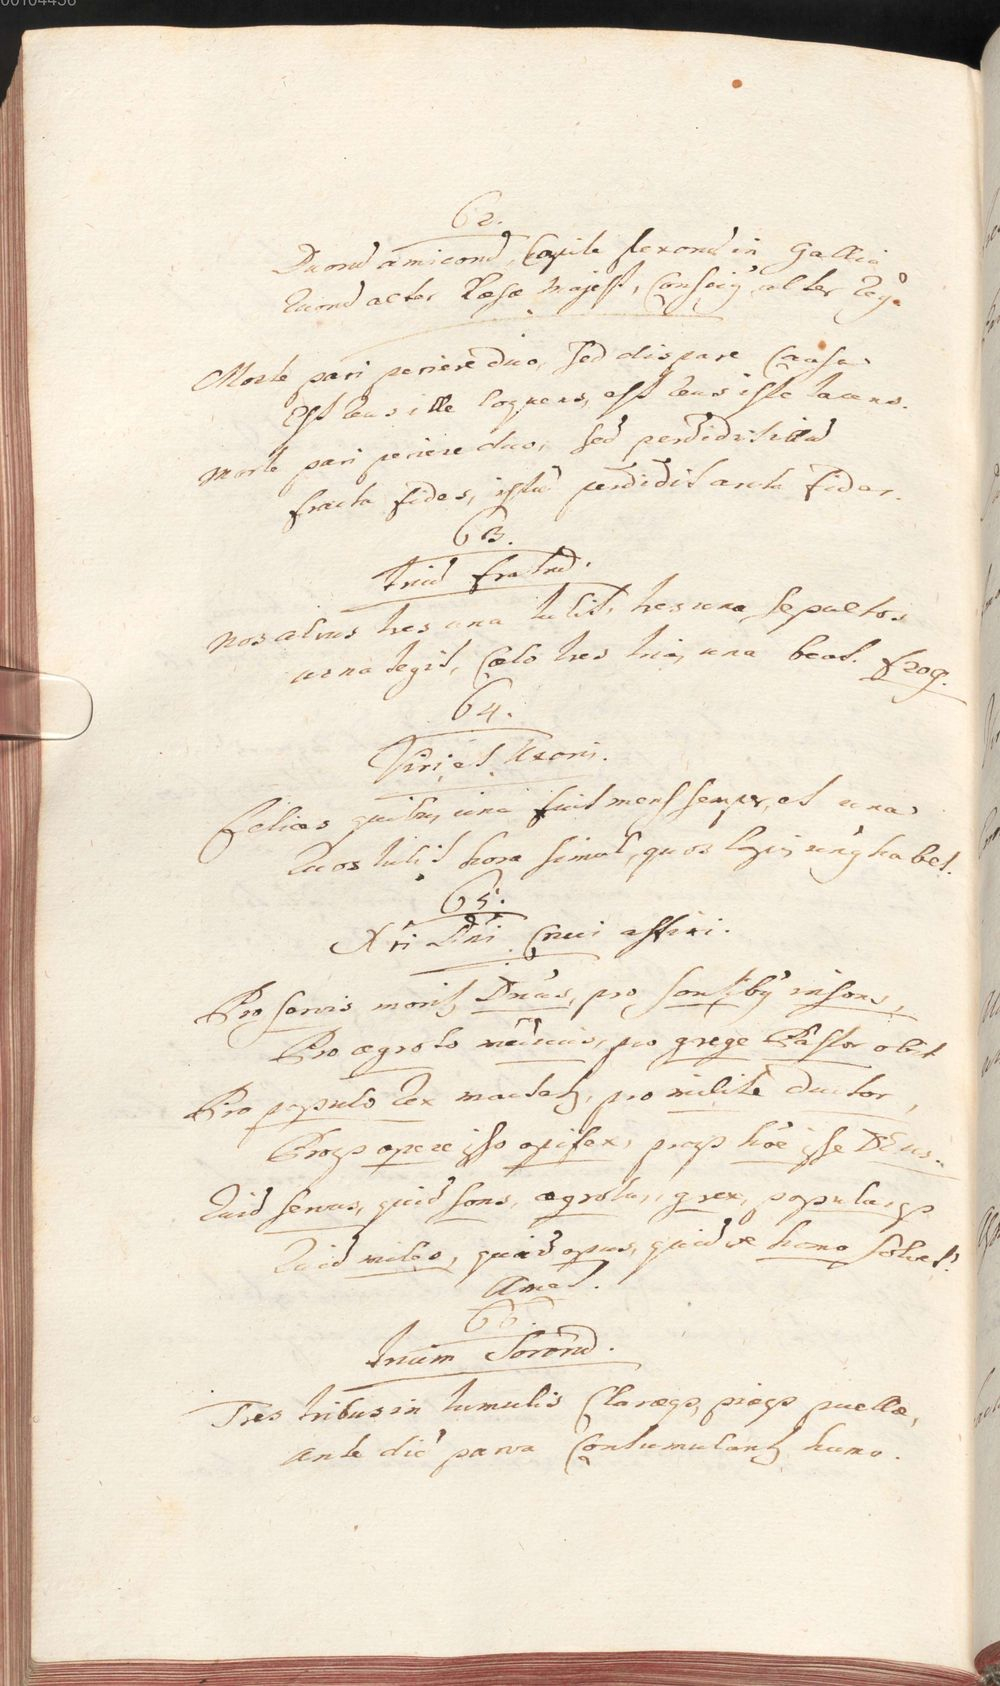 00104436
62.
Duorū amicorū, Capite flexorū in Gallia
quorū alter Læsæ Majest, Consciq alter
Morte pari periere duo, sed dispare Causa
Est reus ille loquens, est reus iste tacens.
Morte pari periere duo, sed perdidit illū
fracta fides, istū perdidit arcta fides.
63.
Triū fratrū.
Nos alvus tres una tulit, tres una sepultos
urna tegit, Cœlo tres tria, una beat. frog.
64.
Viri et Uxoris.
felices quibq, una fuit mens semper, et una
Quos tulit hora simul, quos lapis unq habet.
65.
Xti Dni Cruci affixi.
Pro servis morit Dnus, pro sontibq insons,
Pro ægroto medicus, pro grege Pastor obit
Pro populo Rex mactat, pro milite ductor,
Proqp opere ipso opifex, proqp hoīe ipse DEus.
Quid servus, quid sons, ægrotus, grex, populusqp
Quid miles, quid opus, quid ve homo solvet?
Amet.
66.
Trium Sororū.
Tres tribus in tumulis Claræqp, piæqp puellæ,
ante diē parva Contumulant humo.